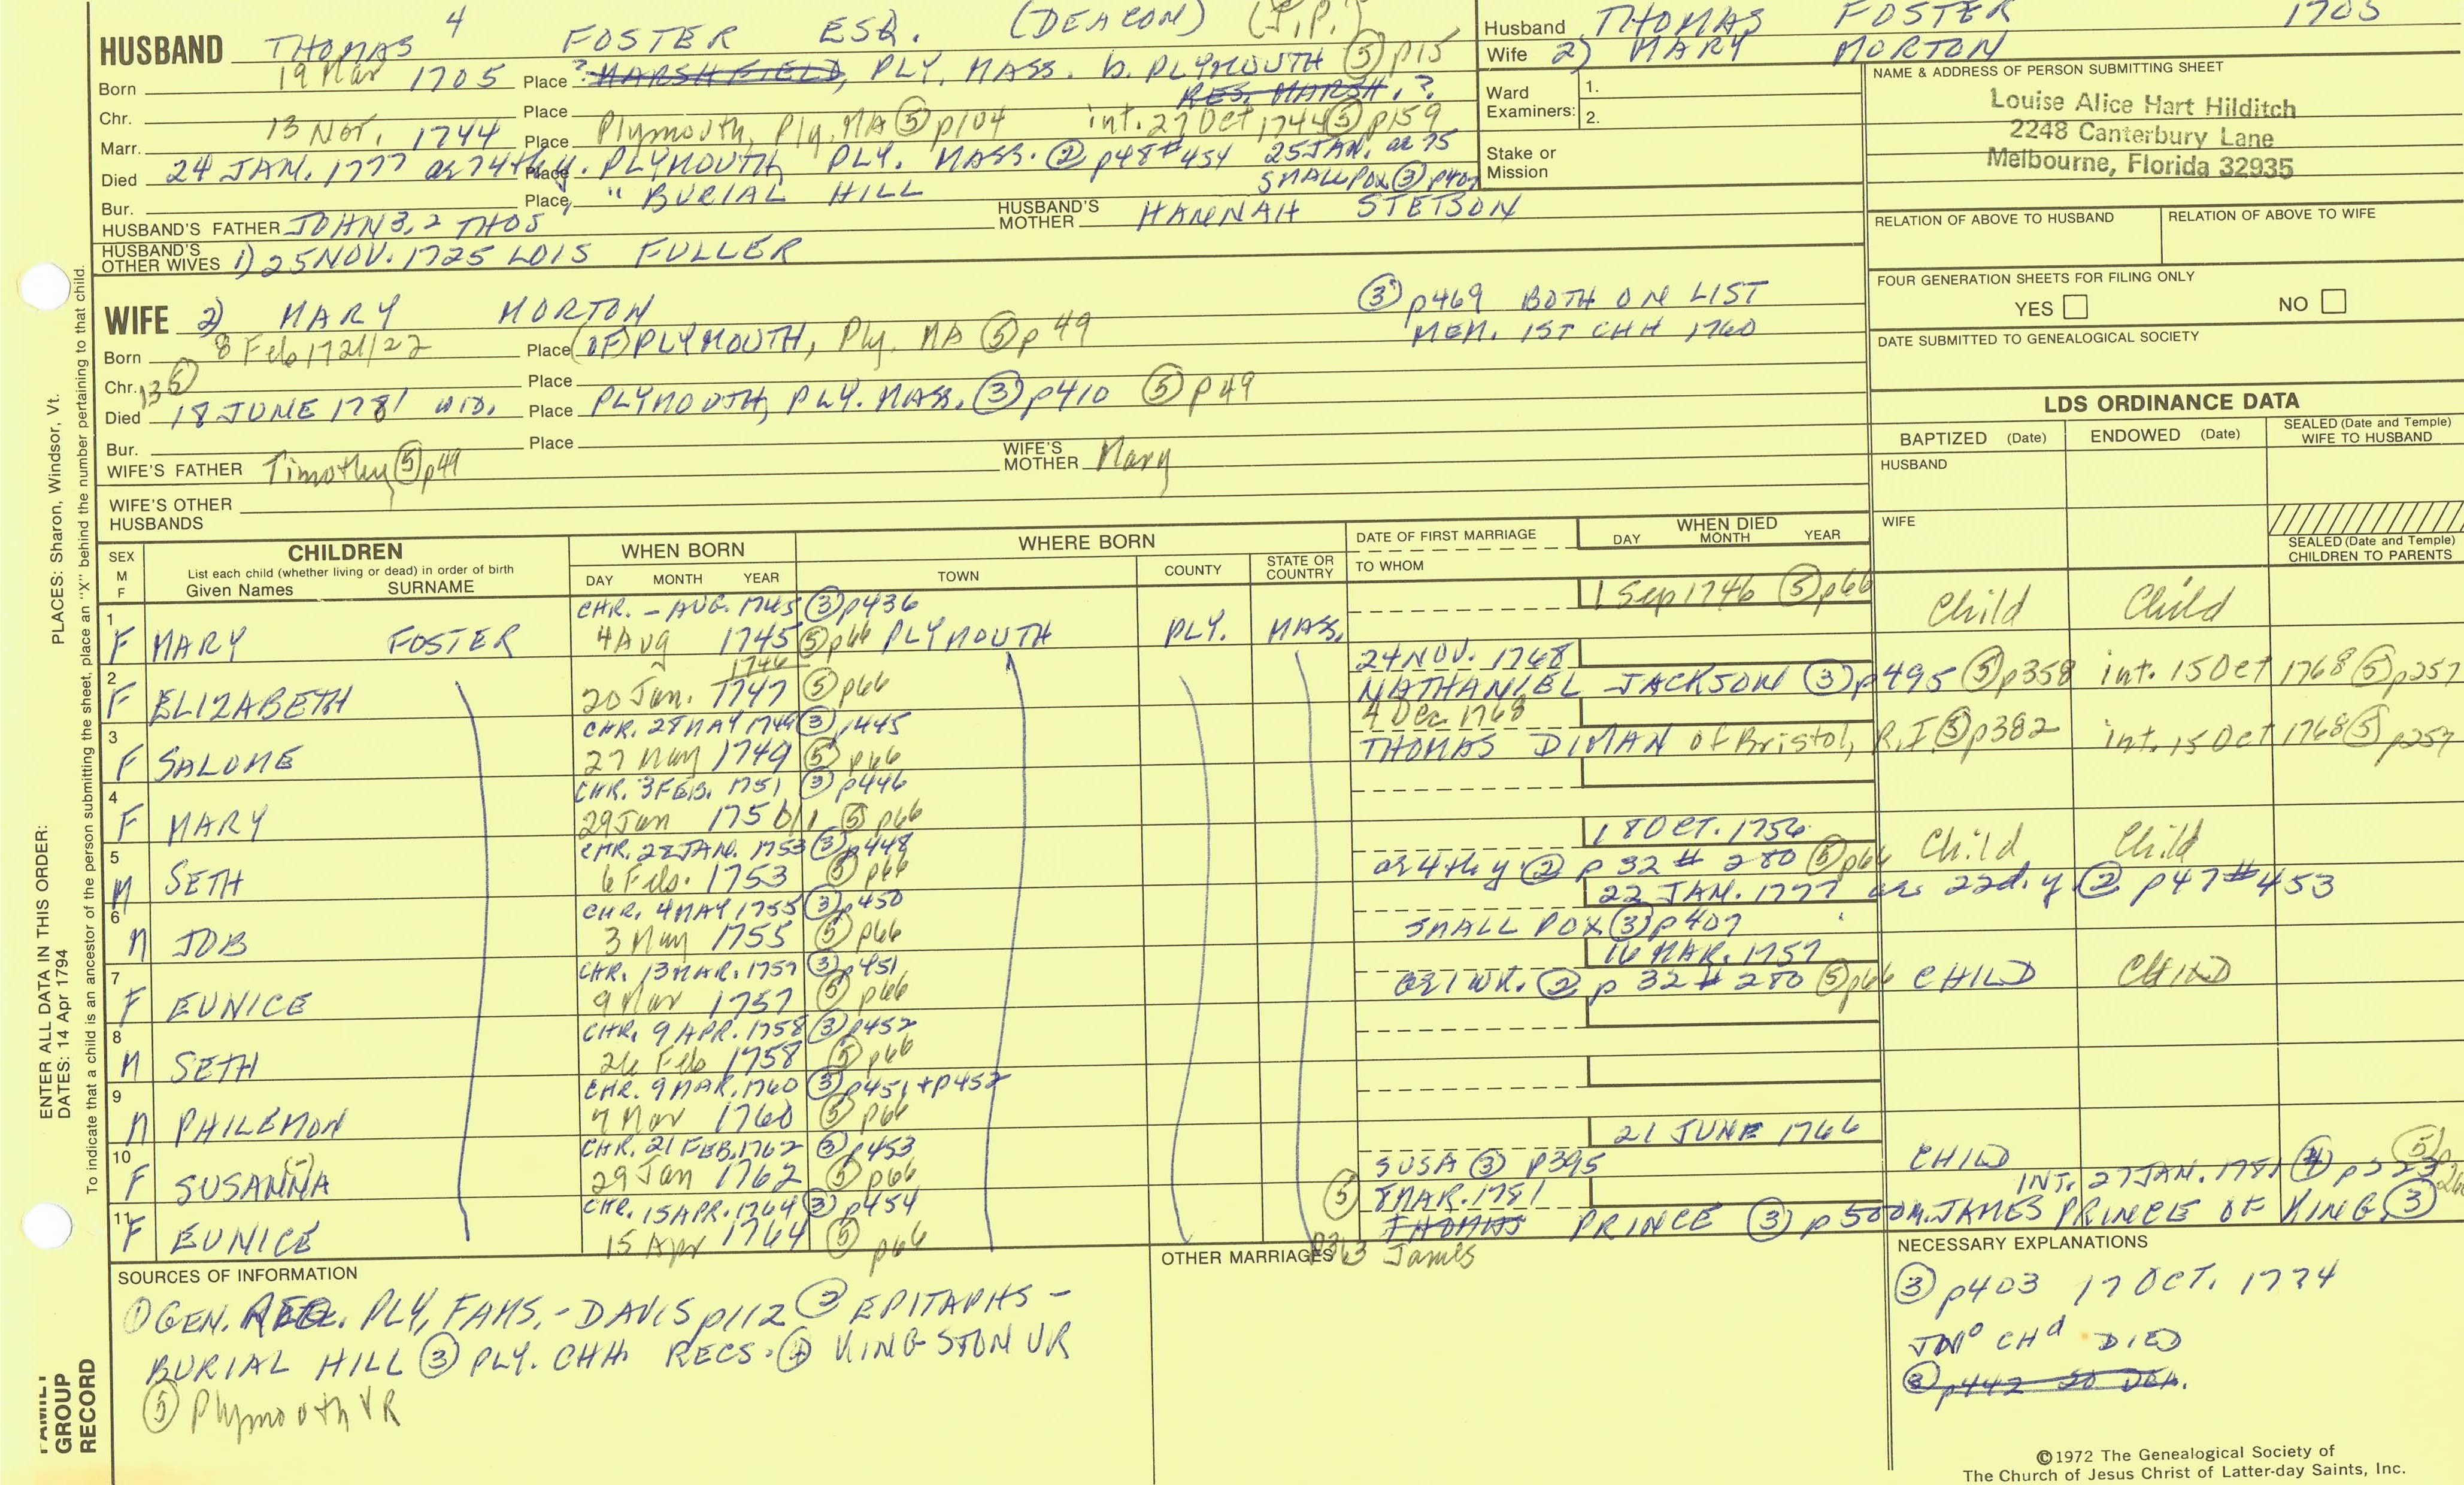 HUSBAND THOMAS 4 FOSTER ESQ. (DEACON) (J.P.)
Born 19 Mar 1705 Place ? MARSHFIELD, PLY. MASS. b. PLYMOUTH ⑤ p15
RES. MARSH. ?
Chr. Place
Marr. 13 Nov. 1744 Place Plymouth, Ply. MA ⑤ p104 int. 27 Oct 1744 ⑤ p159
Died 24 JAN. 1777 ae 74th y. Place PLYMOUTH PLY. MASS. ② p48 #454 25 JAN. ae 75
SMALL POX ③ p407
Bur. Place " BURIAL HILL
HUSBAND'S FATHER JOHN 3, 2 THOS HUSBAND'S MOTHER HANNAH STETSON
HUSBAND'S OTHER WIVES 1) 25 NOV. 1725 LOIS FULLER
Husband THOMAS FOSTER 1705
Wife 2) MARY MORTON
Ward Examiners: 1.
2.
Stake or Mission
NAME & ADDRESS OF PERSON SUBMITTING SHEET
Louise Alice Hart Hilditch
2248 Canterbury Lane
Melbourne, Florida 32935
RELATION OF ABOVE TO HUSBAND RELATION OF ABOVE TO WIFE
FOUR GENERATION SHEETS FOR FILING ONLY
YES NO
DATE SUBMITTED TO GENEALOGICAL SOCIETY
WIFE 2) MARY MORTON
③ p469 BOTH ON LIST
MEM. 1ST CHH 1760
Born 8 Feb 1721/22 Place (OF) PLYMOUTH, Ply. MA ⑤ p49
Chr. Place
135 Died 18 JUNE 1781 WID. Place PLYMOUTH, PLY. MASS. ③ p410 ⑤ p49
Bur. Place
WIFE'S FATHER Timothy ⑤ p49 WIFE'S MOTHER Mary
WIFE'S OTHER HUSBANDS
LDS ORDINANCE DATA
BAPTIZED (Date) ENDOWED (Date) SEALED (Date and Temple) WIFE TO HUSBAND
HUSBAND
WIFE
SEALED (Date and Temple) CHILDREN TO PARENTS
SEX M F CHILDREN WHEN BORN WHERE BORN DATE OF FIRST MARRIAGE WHEN DIED
List each child (whether living or dead) in order of birth
Given Names SURNAME DAY MONTH YEAR TOWN COUNTY STATE OR COUNTRY TO WHOM DAY MONTH YEAR
CHR. - AUG. 1745 ③ p436 1 Sep 1746 ⑤ p66
1 F MARY FOSTER 4 Aug 1745 ⑤ p66 PLYMOUTH PLY. MASS. Child Child
1746 24 NOV. 1768
2 F ELIZABETH 20 Jan. 1747 ⑤ p66 NATHANIEL JACKSON ③ p495 ⑤ p358 int. 15 Oct 1768 ⑤ p257
CHR. 28 MAY 1749 ③ p445 4 Dec 1768
3 F SALOME 27 May 1749 ⑤ p66 THOMAS DIMAN of Bristol, R.I. ⑤ p382 int. 15 Oct 1768 ⑤ p257
CHR. 3 FEB. 1751 ③ p446
4 F MARY 29 Jan 1750/1 ⑤ p66
CHR. 28 JAN. 1753 ③ p448 18 OCT. 1756
5 M SETH 6 Feb. 1753 ⑤ p66 ae 4th y ② p 32 # 280 ⑤ p66 Child Child
CHR. 4 MAY 1755 ③ p450 22 JAN. 1777 ae 22d. y ② p47 #453
6 M JOB 3 May 1755 ⑤ p66 SMALL POX ③ p407
CHR. 13 MAR. 1757 ③ p451 16 MAR. 1757
7 F EUNICE 9 Mar 1757 ⑤ p66 ae 1 WK. ② p 32 # 280 ⑤ p66 CHILD CHILD
CHR. 9 APR. 1758 ③ p452
8 M SETH 26 Feb 1758 ⑤ p66
CHR. 9 MAR. 1760 ③ p451 + p452
9 M PHILEMON 7 Mar 1760 ⑤ p66
CHR. 21 FEB. 1762 ③ p453 21 JUNE 1766
10 F SUSANNA (-) 29 Jan 1762 ⑤ p66 SUSA ③ p395 CHILD
CHR. 15 APR. 1764 ③ p454 ⑤ 8 MAR. 1781 INT. 27 JAN. 1781 ④
11 F EUNICE 15 Apr 1764 ⑤ p66 THOMAS PRINCE ③ p500 M. JAMES PRINCE OF KING. ③
p363 James
SOURCES OF INFORMATION
① GEN. REG. PLY. FAMS. - DAVIS p112 ② EPITAPHS -
BURIAL HILL ③ PLY. CHH. RECS. ④ KINGSTON VR
⑤ Plymouth VR
OTHER MARRIAGES
NECESSARY EXPLANATIONS
③ p403 17 OCT. 1774
JNº CHd DIED
③ p442
©1972 The Genealogical Society of
The Church of Jesus Christ of Latter-day Saints, Inc.
ENTER ALL DATA IN THIS ORDER: PLACES: Sharon, Windsor, Vt.
DATES: 14 Apr 1794
To indicate that a child is an ancestor of the person submitting the sheet, place an "X" behind the number pertaining to that child.
FAMILY
GROUP
RECORD